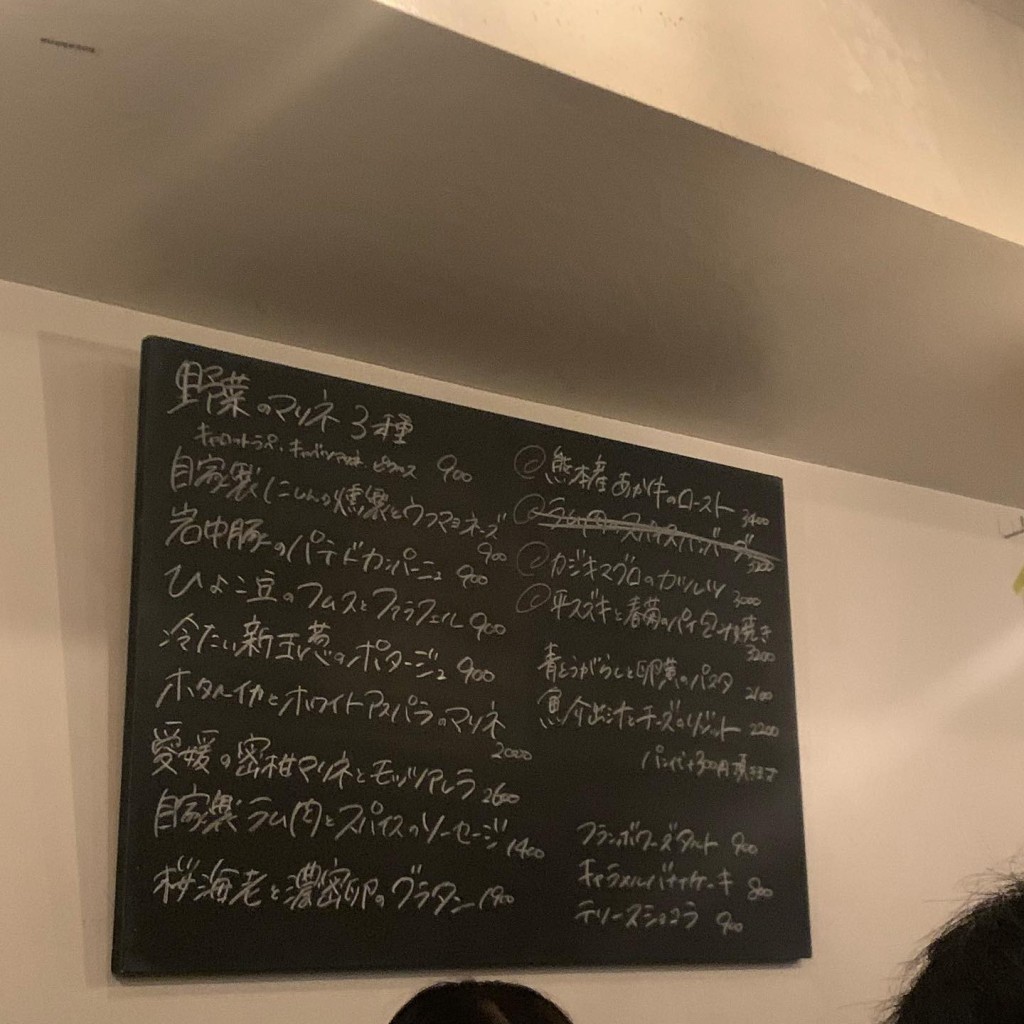 野菜のマリネ 3種
キャロットラペ、キャベツマリネ、ピクルス 900
自家製にしんの燻製とウフマヨネーズ 900
岩中豚のパテドカンパーニュ 900
ひよこ豆のフムスとファラフェル 900
冷たい新玉葱のポタージュ 900
ホタルイカとホワイトアスパラのマリネ 2000
愛媛の蜜柑マリネとモッツアレラ 2600
自家製 ラム肉とスパイスのソーセージ 1400
桜海老と濃密卵のグラタン 1900
熊本産あか牛のロースト 3400
カジキマグロのカツレツ 3000
平スズキと春菊のパイ包み焼き 3200
青とうがらしと卵黄のパスタ 2100
魚介出汁とチーズのリゾット 2200
フランボワーズタルト 900
キャラメルバナナケーキ 800
テリーヌショコラ 900